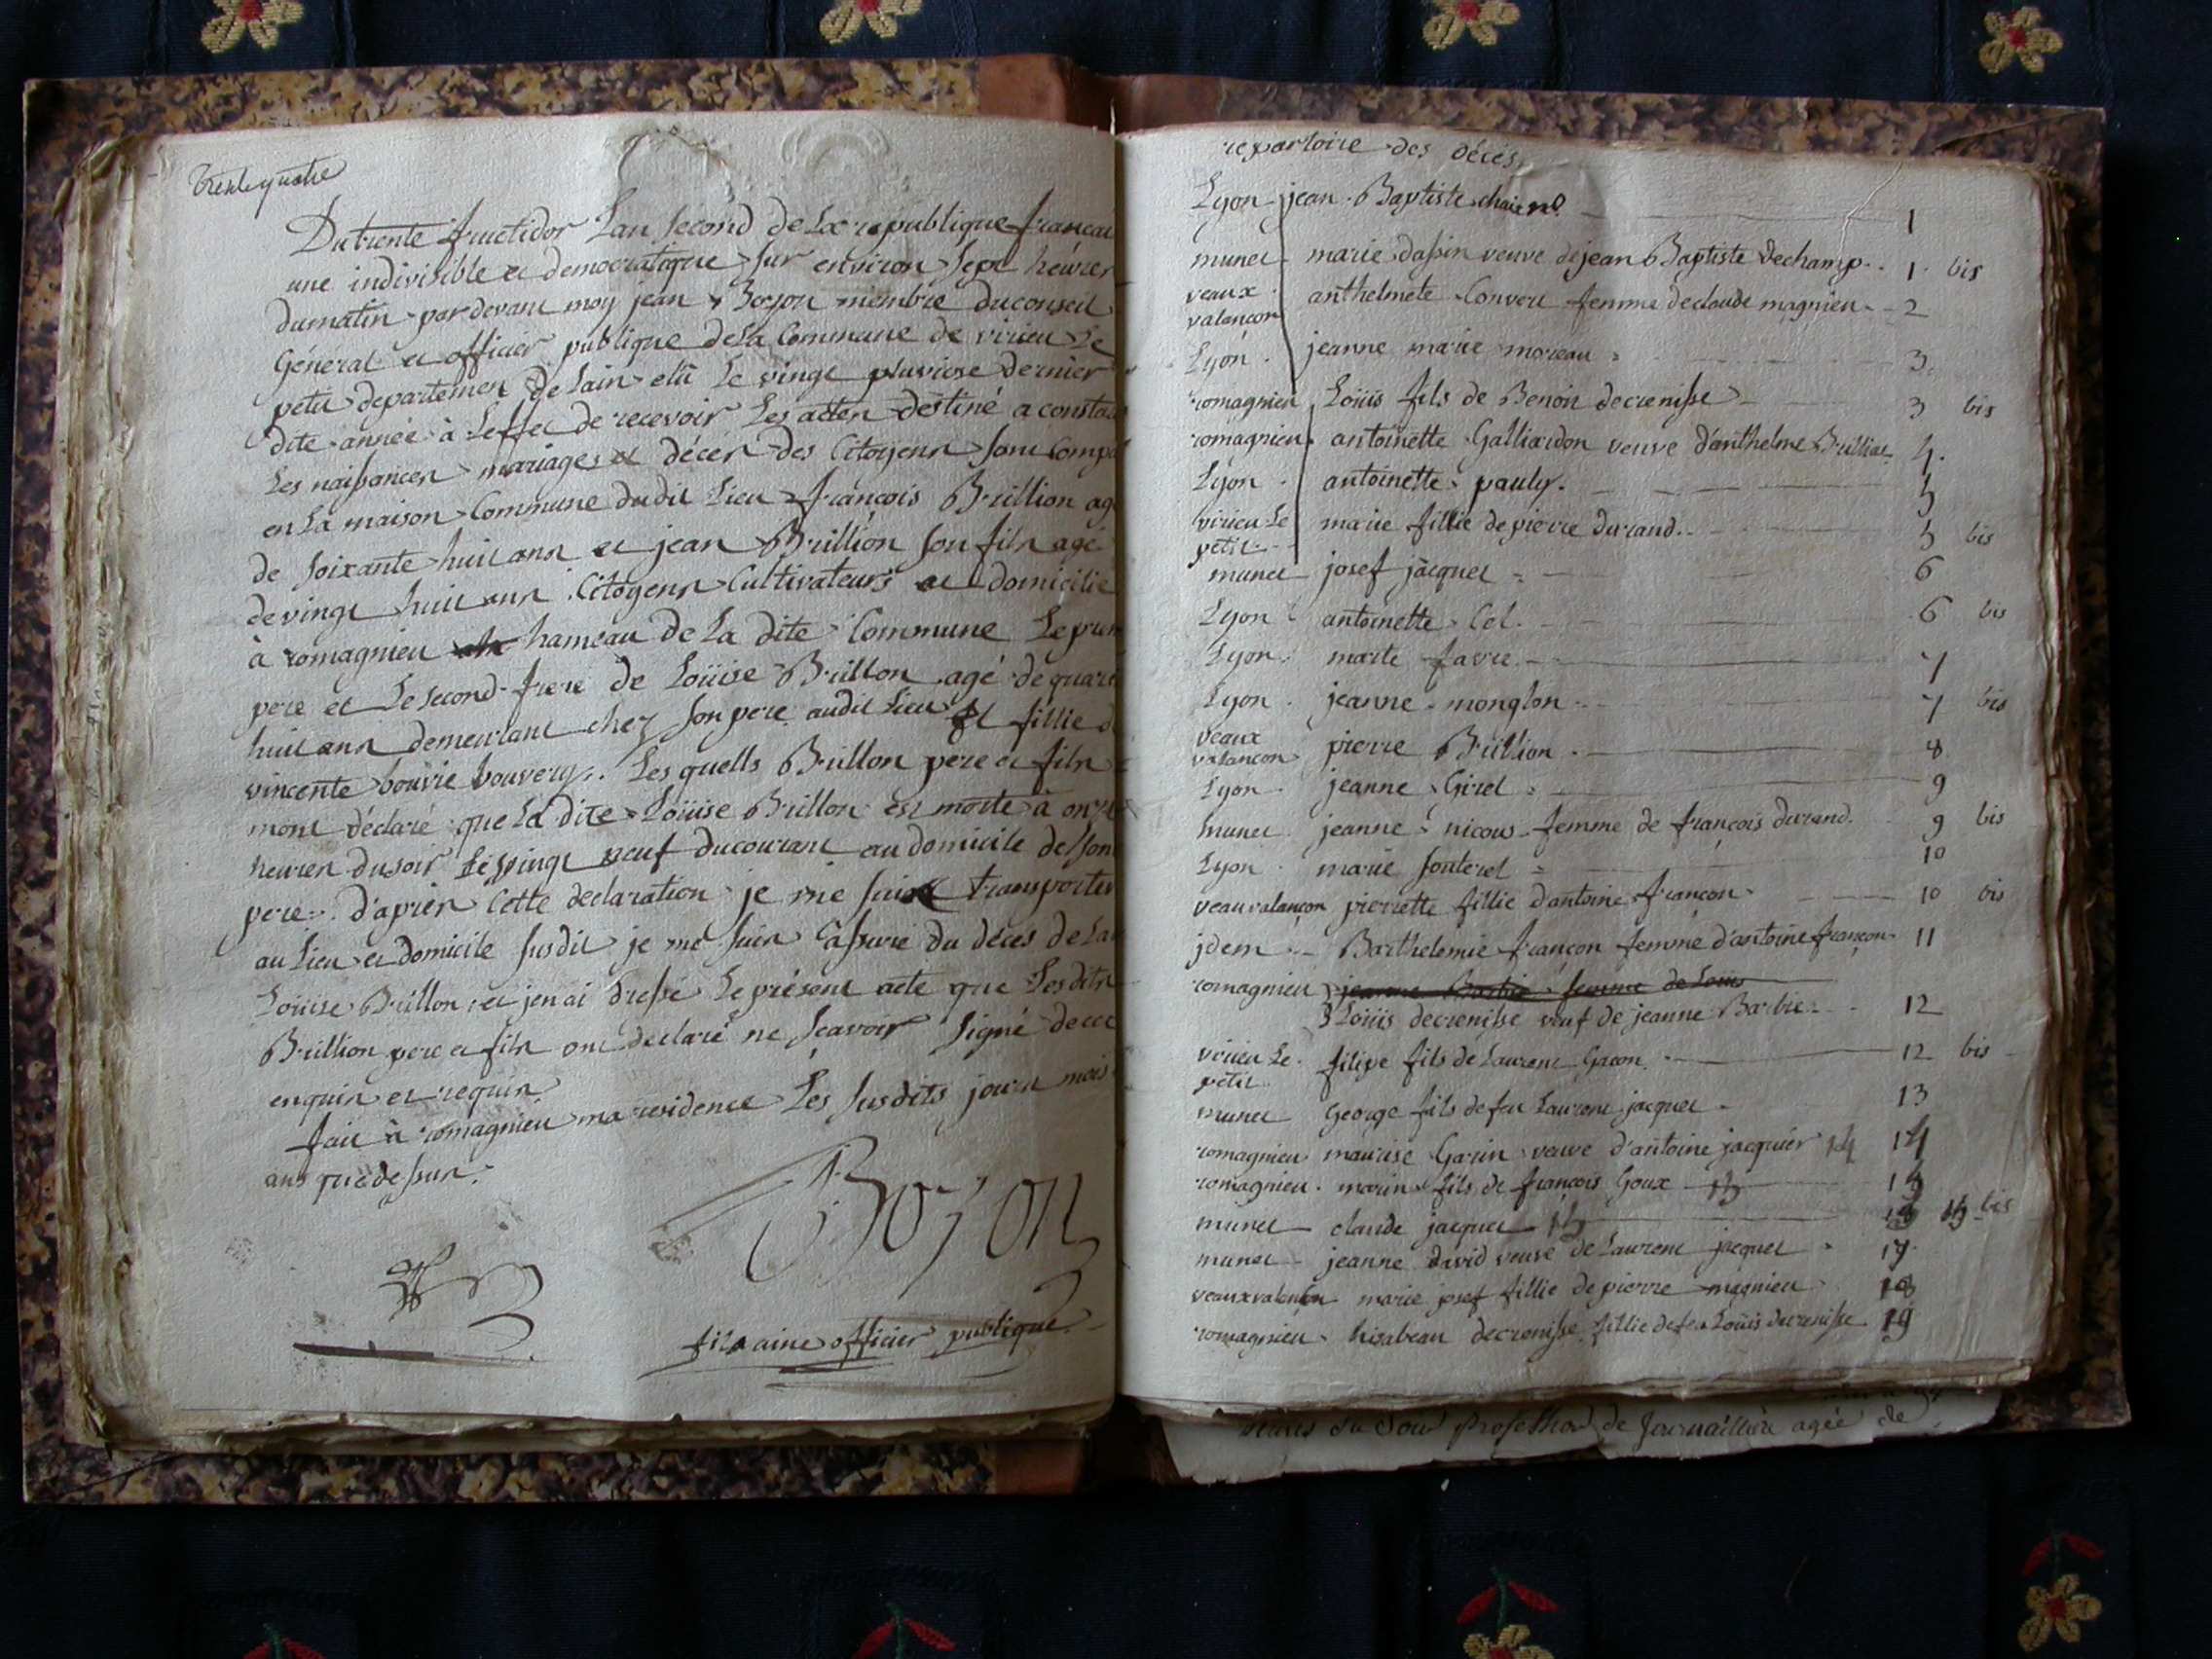 trente quatre
Du trente fructidor Lan second de La republique francai
une indivisible et democratique sur environ sept heures
du matin pardevant moy jean Bozon membre du conseil
Géneral et officier publique de La Commune de virieu Le
petit departement de Lain elû Le vingt pluviose dernier
dite année à Leffet de recevoir Les actes destiné a consta
Les naissances mariages et décès des Citoyens sont Comp
en La maison Commune dudit Lieu françois Brillion ag
de soixante huit ans et jean Brillion son fils agé
de vingt huit ans Citoyens Cultivateurs et domicilié
à romagnieu hameau de La dite Commune Le prem
pere et Le second frere de Loüise Brillon agé de quara
huit ans demeurant chez son pere audit Lieu et fillie d
vincente bouvie bouverg. Les quells Brillon pere et fils
mont déclaré que La dite Loüise Brillon est morte à onz
heures du soir Le vingt neuf ducourant au domicile de son
pere. d'après Cette declaration je me suis transporter
au Lieu et domicile susdit je me suis assuré du décès de La
Loüise Brillon et jen ai dressé Le présent acte que Lesdits
Brillion pere et fils ont declaré ne scavoir signé de ce
enquis et requis.
fait à romagnieu ma residence Les susdits jours mois
ans que dessus.
Bozon
fils aine officier publique
repartoire des décès
Lyon jean Baptiste 1
munet marie dassin veuve de jean Baptiste dechamp 1 bis
veaux
valancon anthelmete Convert femme declaude magnieu 2
Lyon jeanne marie moreau 3
romagnieu Loüis fils de Benoit decrenisse 3 bis
romagnieu antoinette Galliardon veuve d'anthelme Brilliat 4
Lyon antoinette pauly 5
virieu Le
petit marie fillie de pierre durand 5 bis
munet josef jacquet 6
Lyon antoinette Cel 6 bis
Lyon marte favre 7
Lyon jeanne monglon 7 bis
veaux
valancon pierre Brillion 8
Lyon jeanne Girel 9
munet jeanne nicous femme de françois durand 9 bis
Lyon marie fonteret 10
veauvalançon pierrette fillie d'antoine françon 10 bis
jdem Barthelemie françon femme d'antoine françon 11
romagnieu jeanne Barbie femme de Loüis
Loüis decrenisse veuf de jeanne Barbie 12
virieu Le
petit filipe fils de Laurent Gacon 12 bis
munet George fils de feu Laurent jacquet 13
romagnieu maurise Garin veuve d'antoine jacquier 14
romagnieu marin fils de françois Goux 15
munet claude jacquet bis
munet jeanne david veuve de Laurent jacquet 17
veauxvalançon marie josef fillie de pierre magnieu 18
romagnieu hisabeau decrenisse fillie defeu Loüis decrenisse 19
heures du soir de agée de